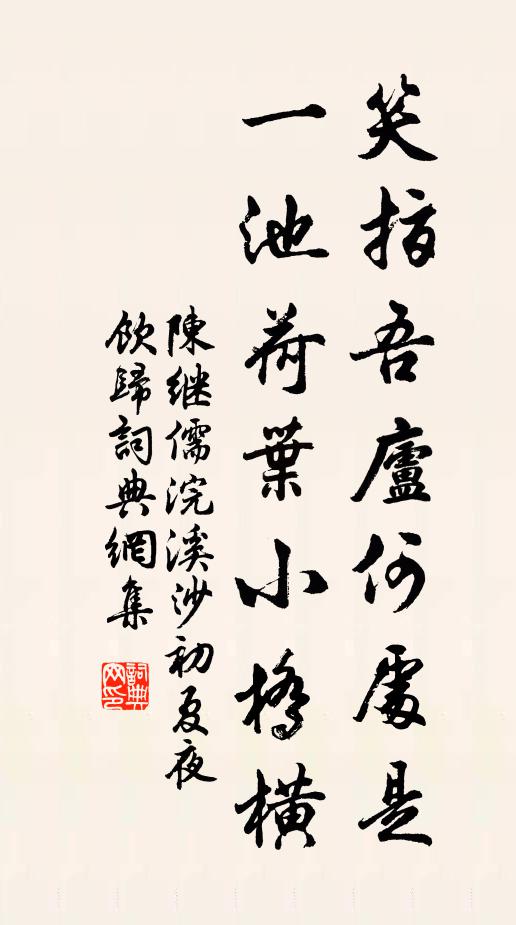 笑指吾廬何處是
一池荷葉小橋橫
陳继儒浣溪沙初夏夜
飲歸詞典網集
詞典网印